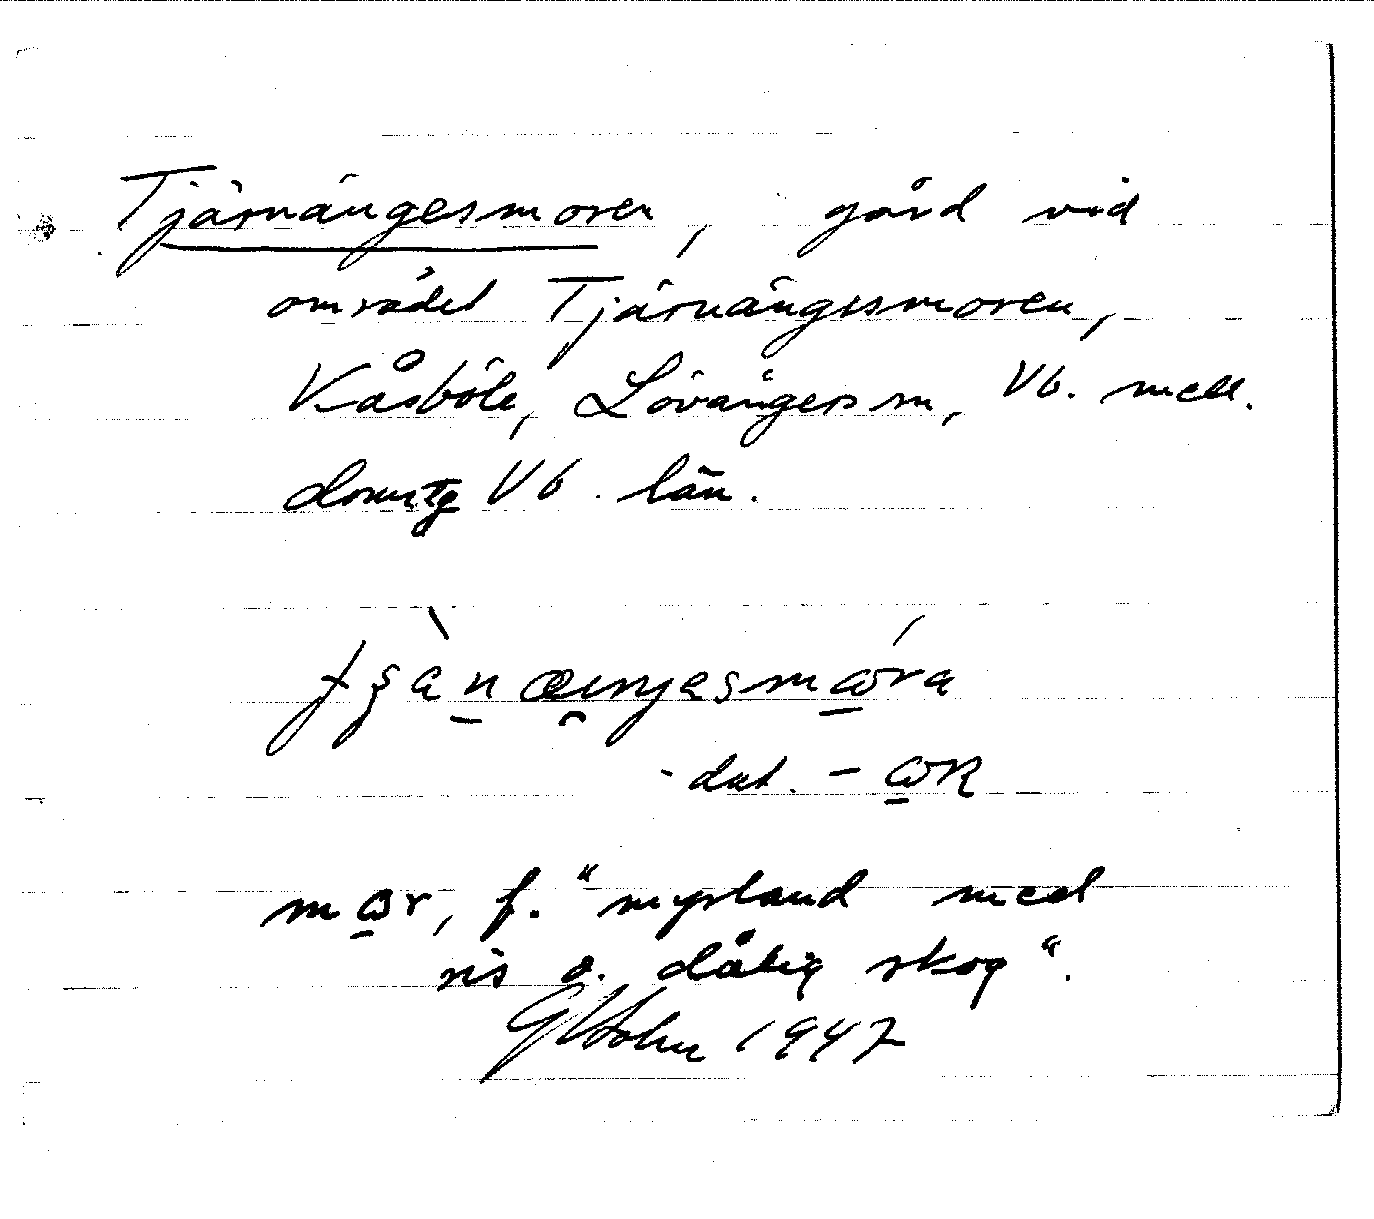 Tjärnängesmoren, gård vid
området Tjärnängesmoren,
Kåsböle, Lövångers sn, Vb. mell.
domstg Vb. län.
-dat. -
f. "myrland med
ris o. dålig skog".
1947